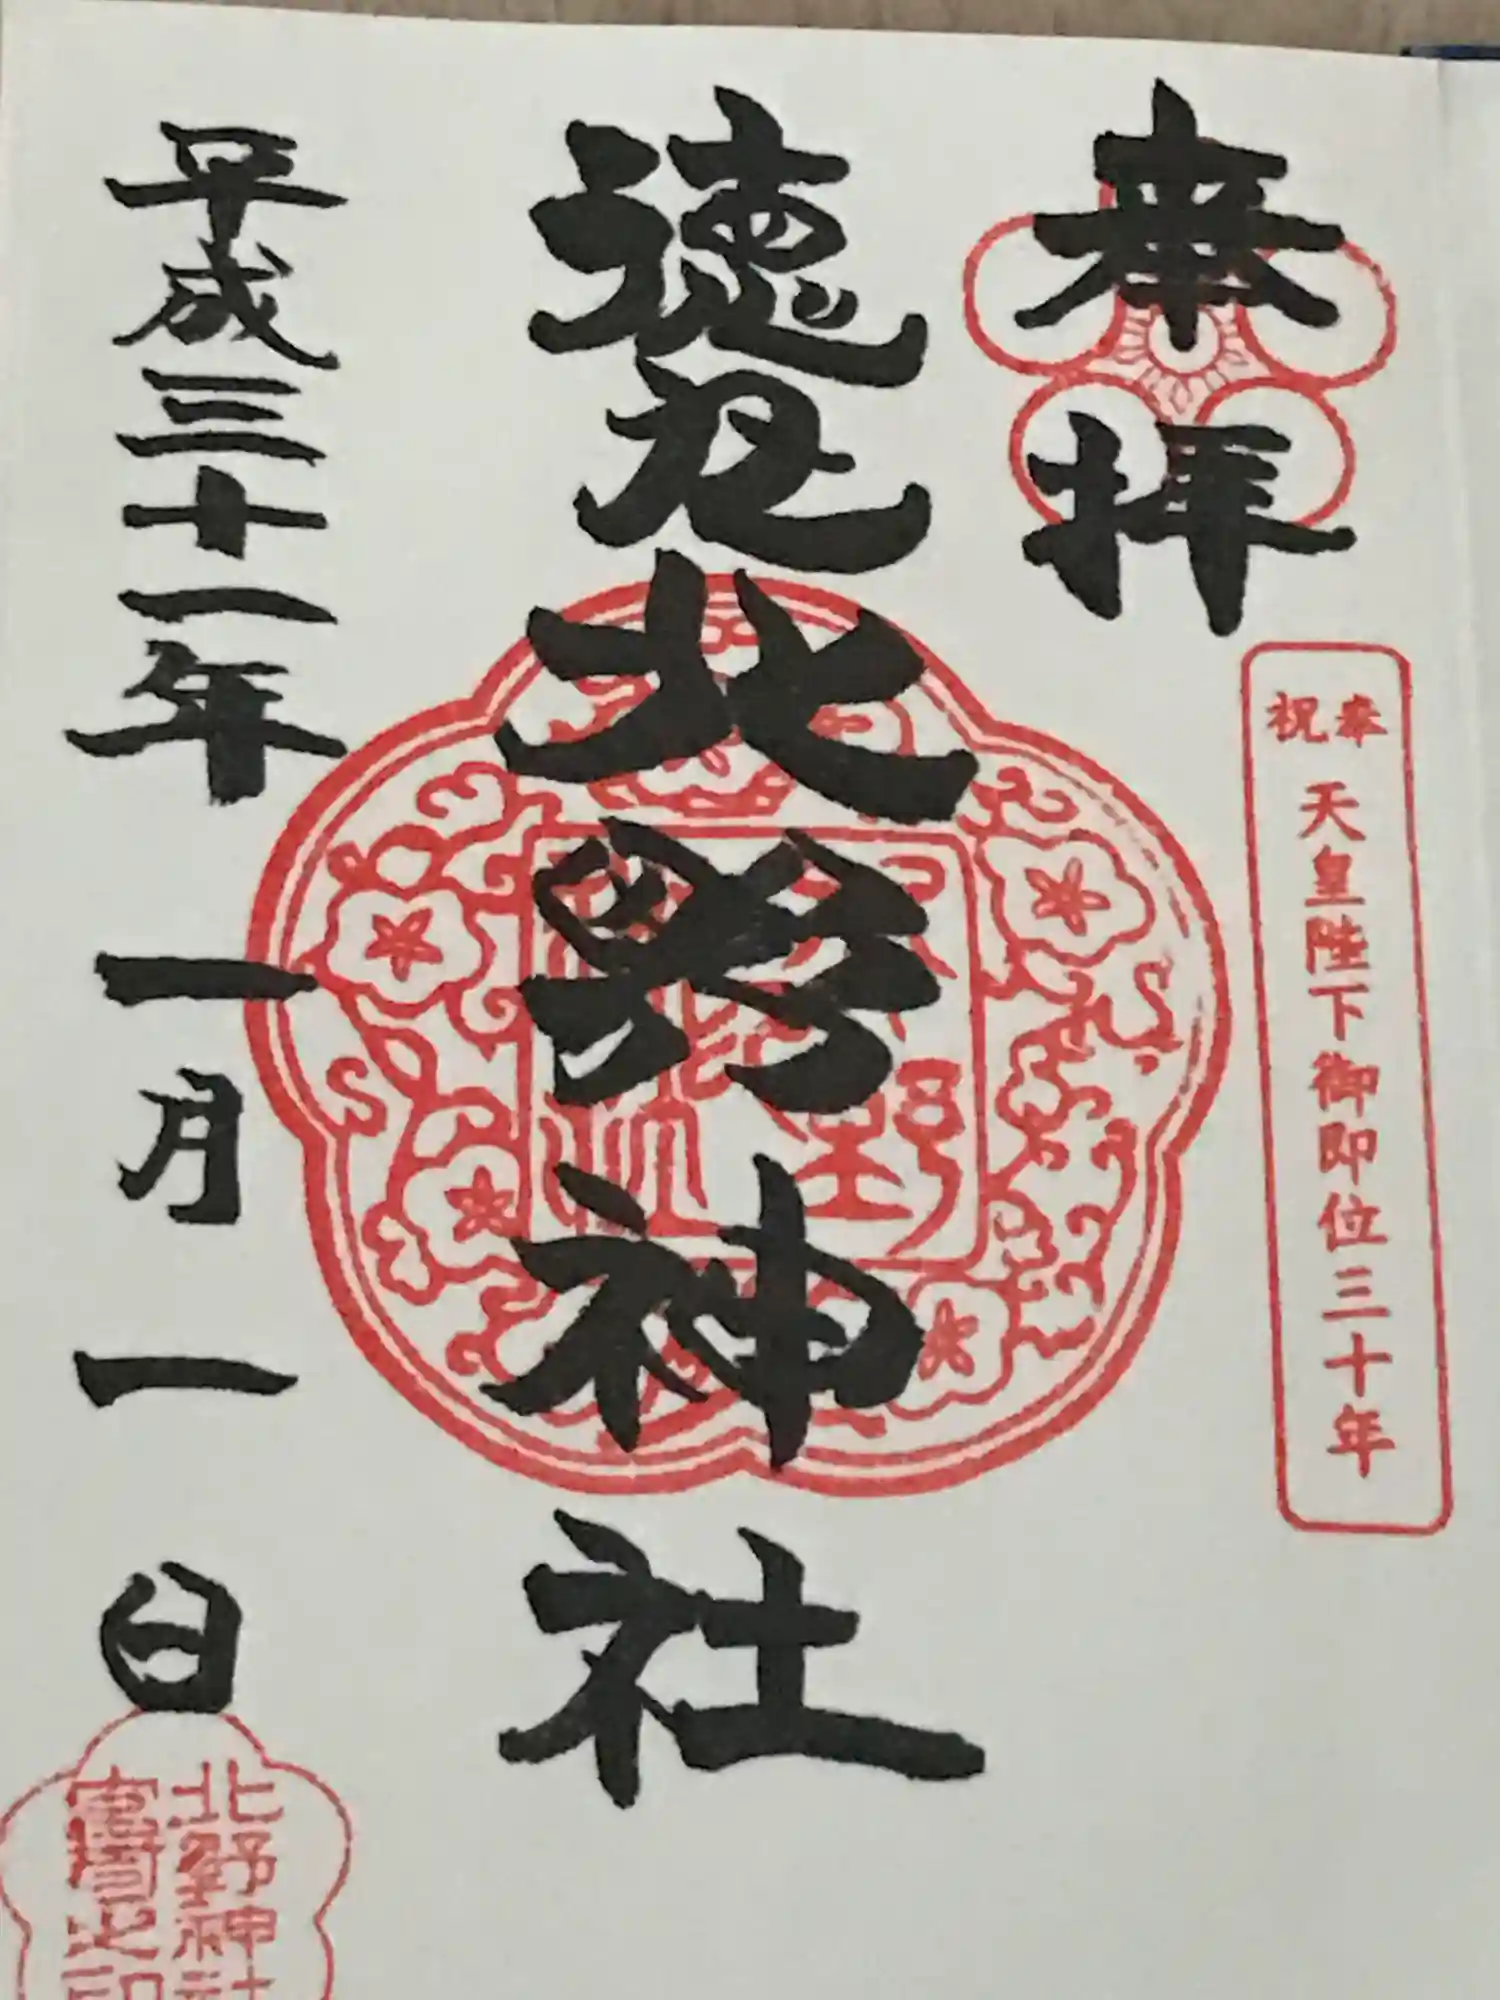 奉拝
奉祝 天皇陛下御即位三十年
徳丸北野神社
平成三十一年 一月 一日
北野神社
之印